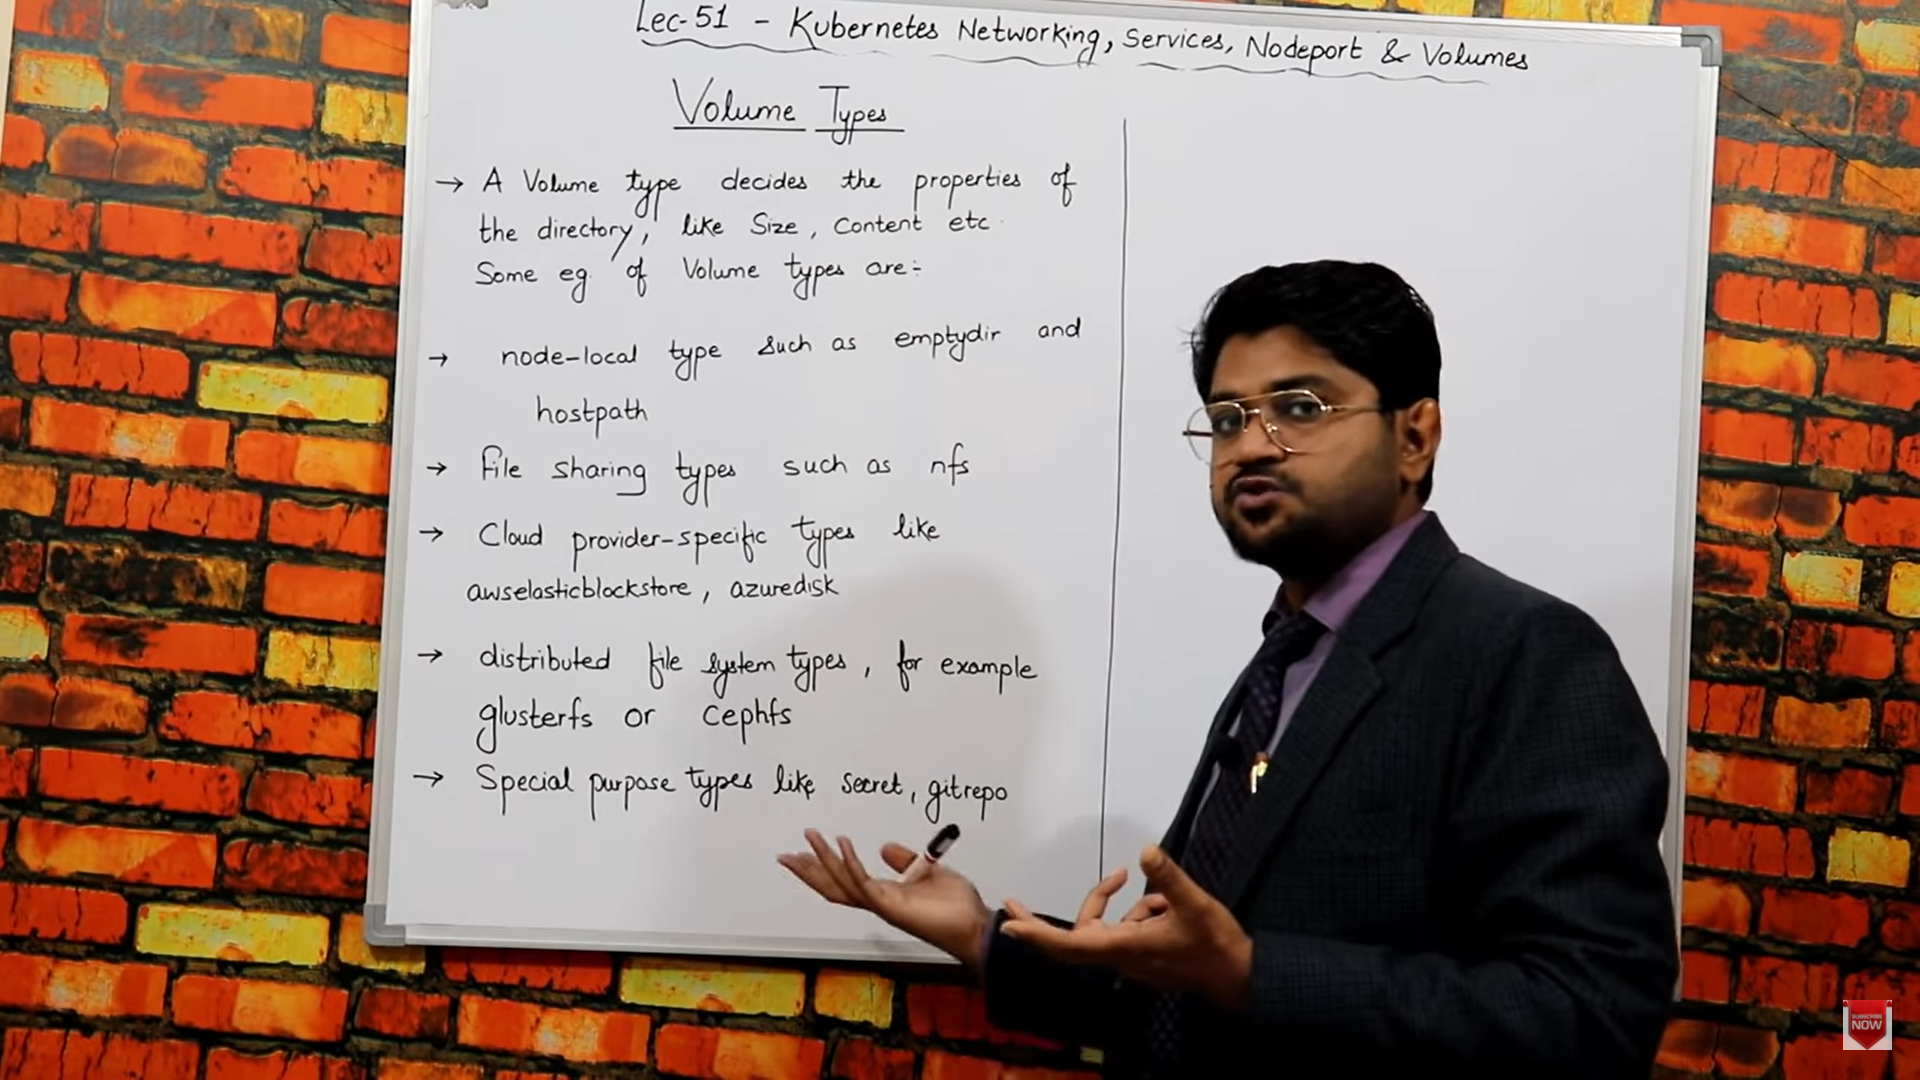 Lec-51 - Kubernetes Networking, Services, Nodeport & Volumes
Volume Types
→ A Volume type decides the properties of
the directory, like Size, Content etc.
Some eg. of Volume types are:-
→ node-local type such as emptydir and
hostpath
→ File sharing types such as nfs
→ Cloud provider-specific types like
awselasticblockstore, azuredisk
→ distributed file system types, for example
glusterfs or Cephfs
→ Special purpose types like secret, gitrepo
SUBSCRIBE
NOW